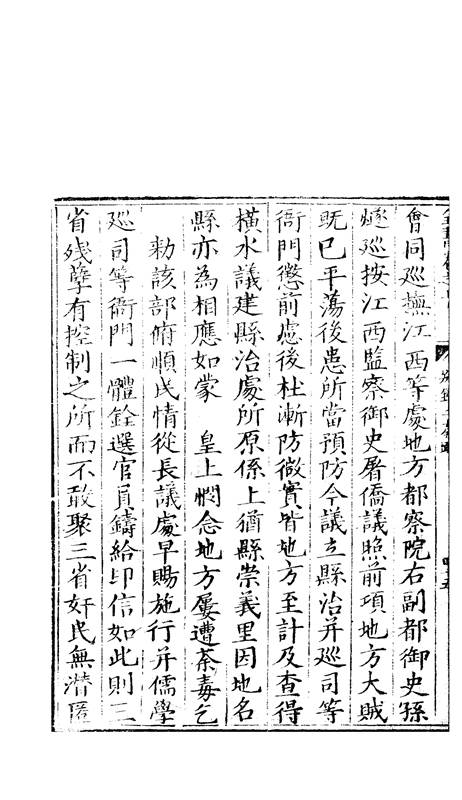 會同巡撫江西等處地方都察院右副都御史孫
燧巡按江西監察御史屠僑議照前項地方大賊
既已平蕩後患所當預防今議立縣治并巡司等
衙門懲前慮後杜漸防微實皆地方至計及查得
橫水議建縣治處所原係上猶縣崇義里因地名
縣亦為相應如蒙　皇上憫念地方屢遭荼毒乞
勑該部俯順民情從長議處早賜施行并儒學
廵司等衙門一體銓選官員鑄給印信如此則三
省殘孽有控制之所而不敢聚三省奸民無潛匿